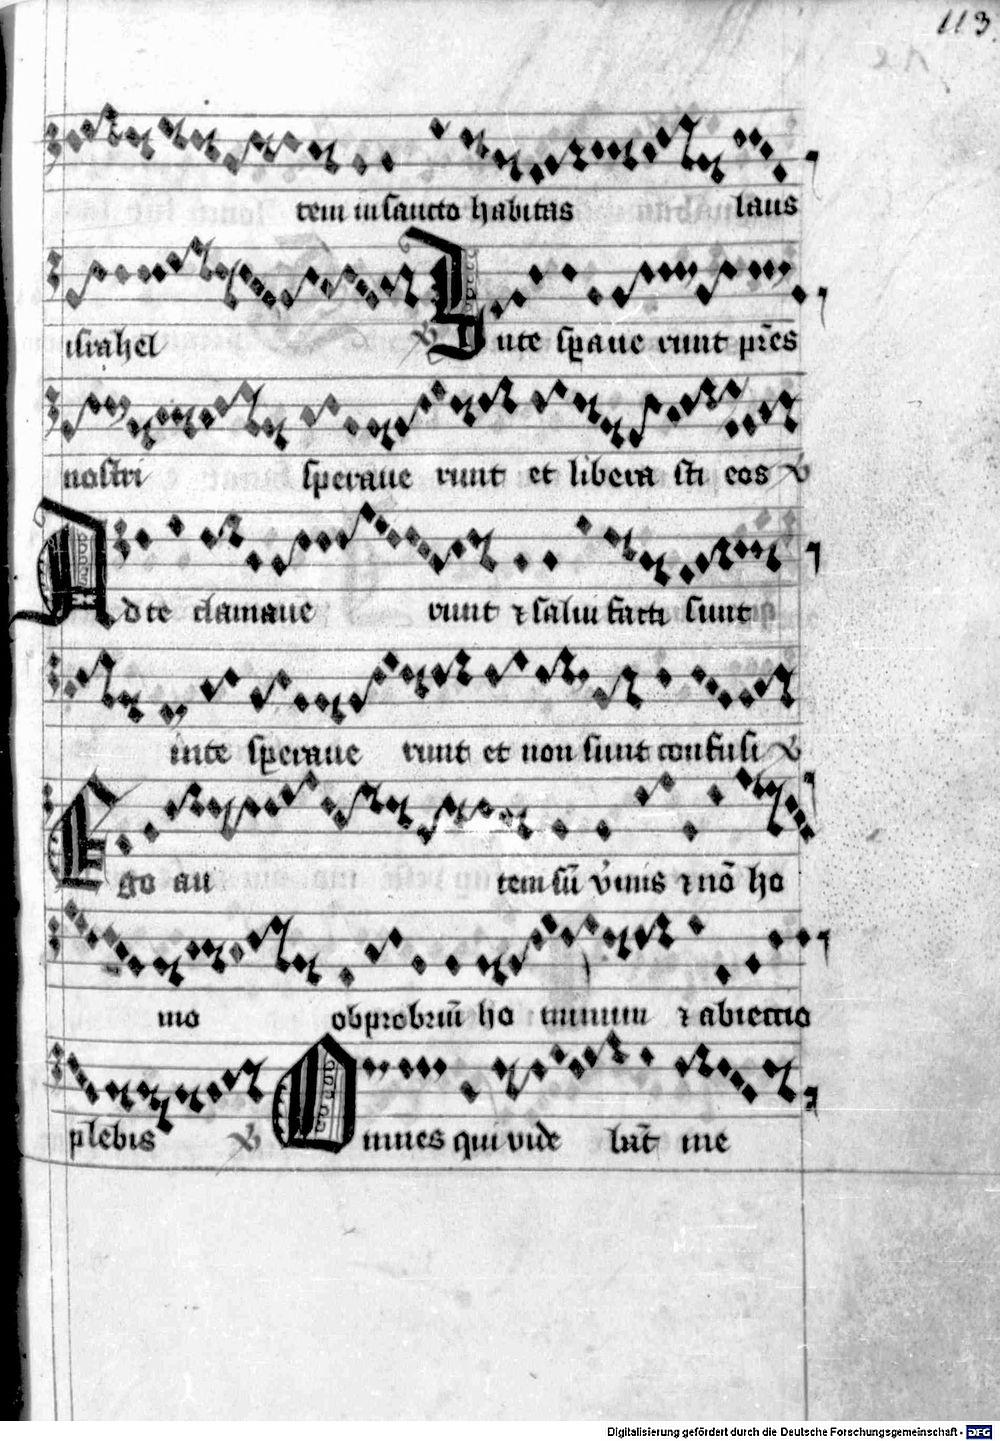 113.
tem in sancto habitas laus
israhel ℣ Inte sꝑaue runt pr̃es
nostri speraue runt et libera sti eos ℣
Ad te clamaue runt ⁊ salui facti sunt
inte speraue runt et non sunt confusi ℣
Ego au tem sū v̾mis ⁊ nō ho
mo obprobriū ho minum ⁊ abiectio
plebis ℣ Omnes qui vide bāt me
Digitalisierung gefördert durch die Deutsche Forschungsgemeinschaft - DFG